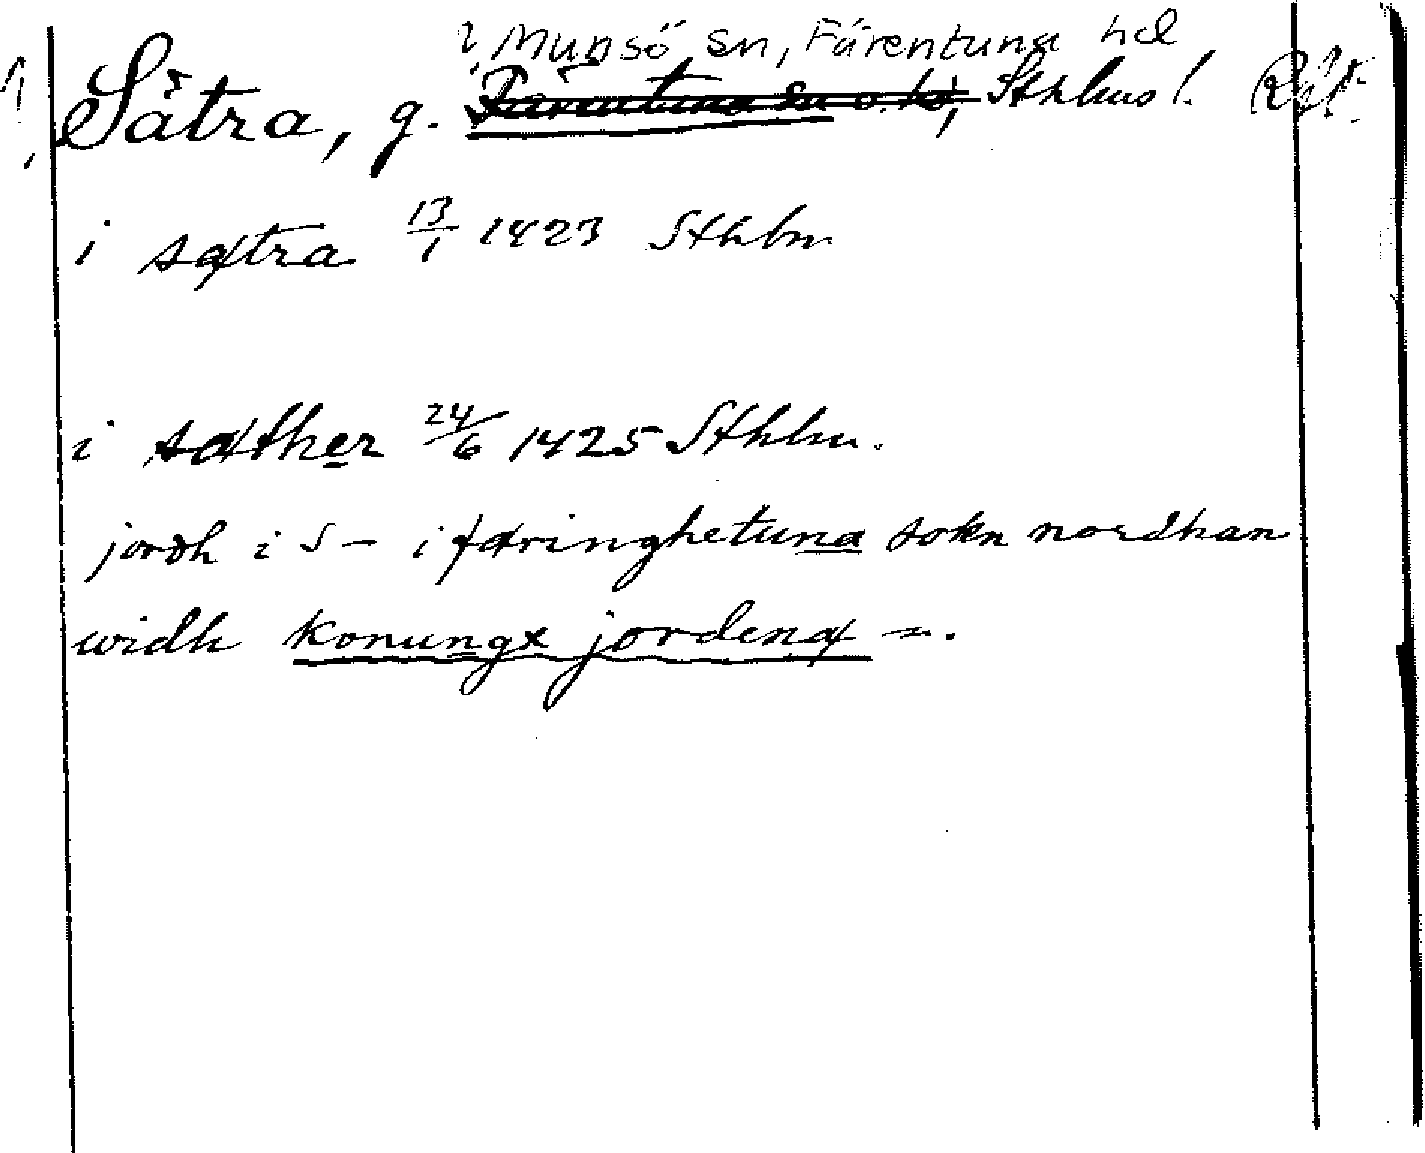 i Munsö sn, Färentuna hd
Sätra, g. Färentuna sn o. hd, Sthlms l.
i sætra 13/1 1423 Sthlm
i sæther 24/6 1425 Sthlm.
jordh i S – i færinghetuna sokn nordhan
widh konungx jordenæ